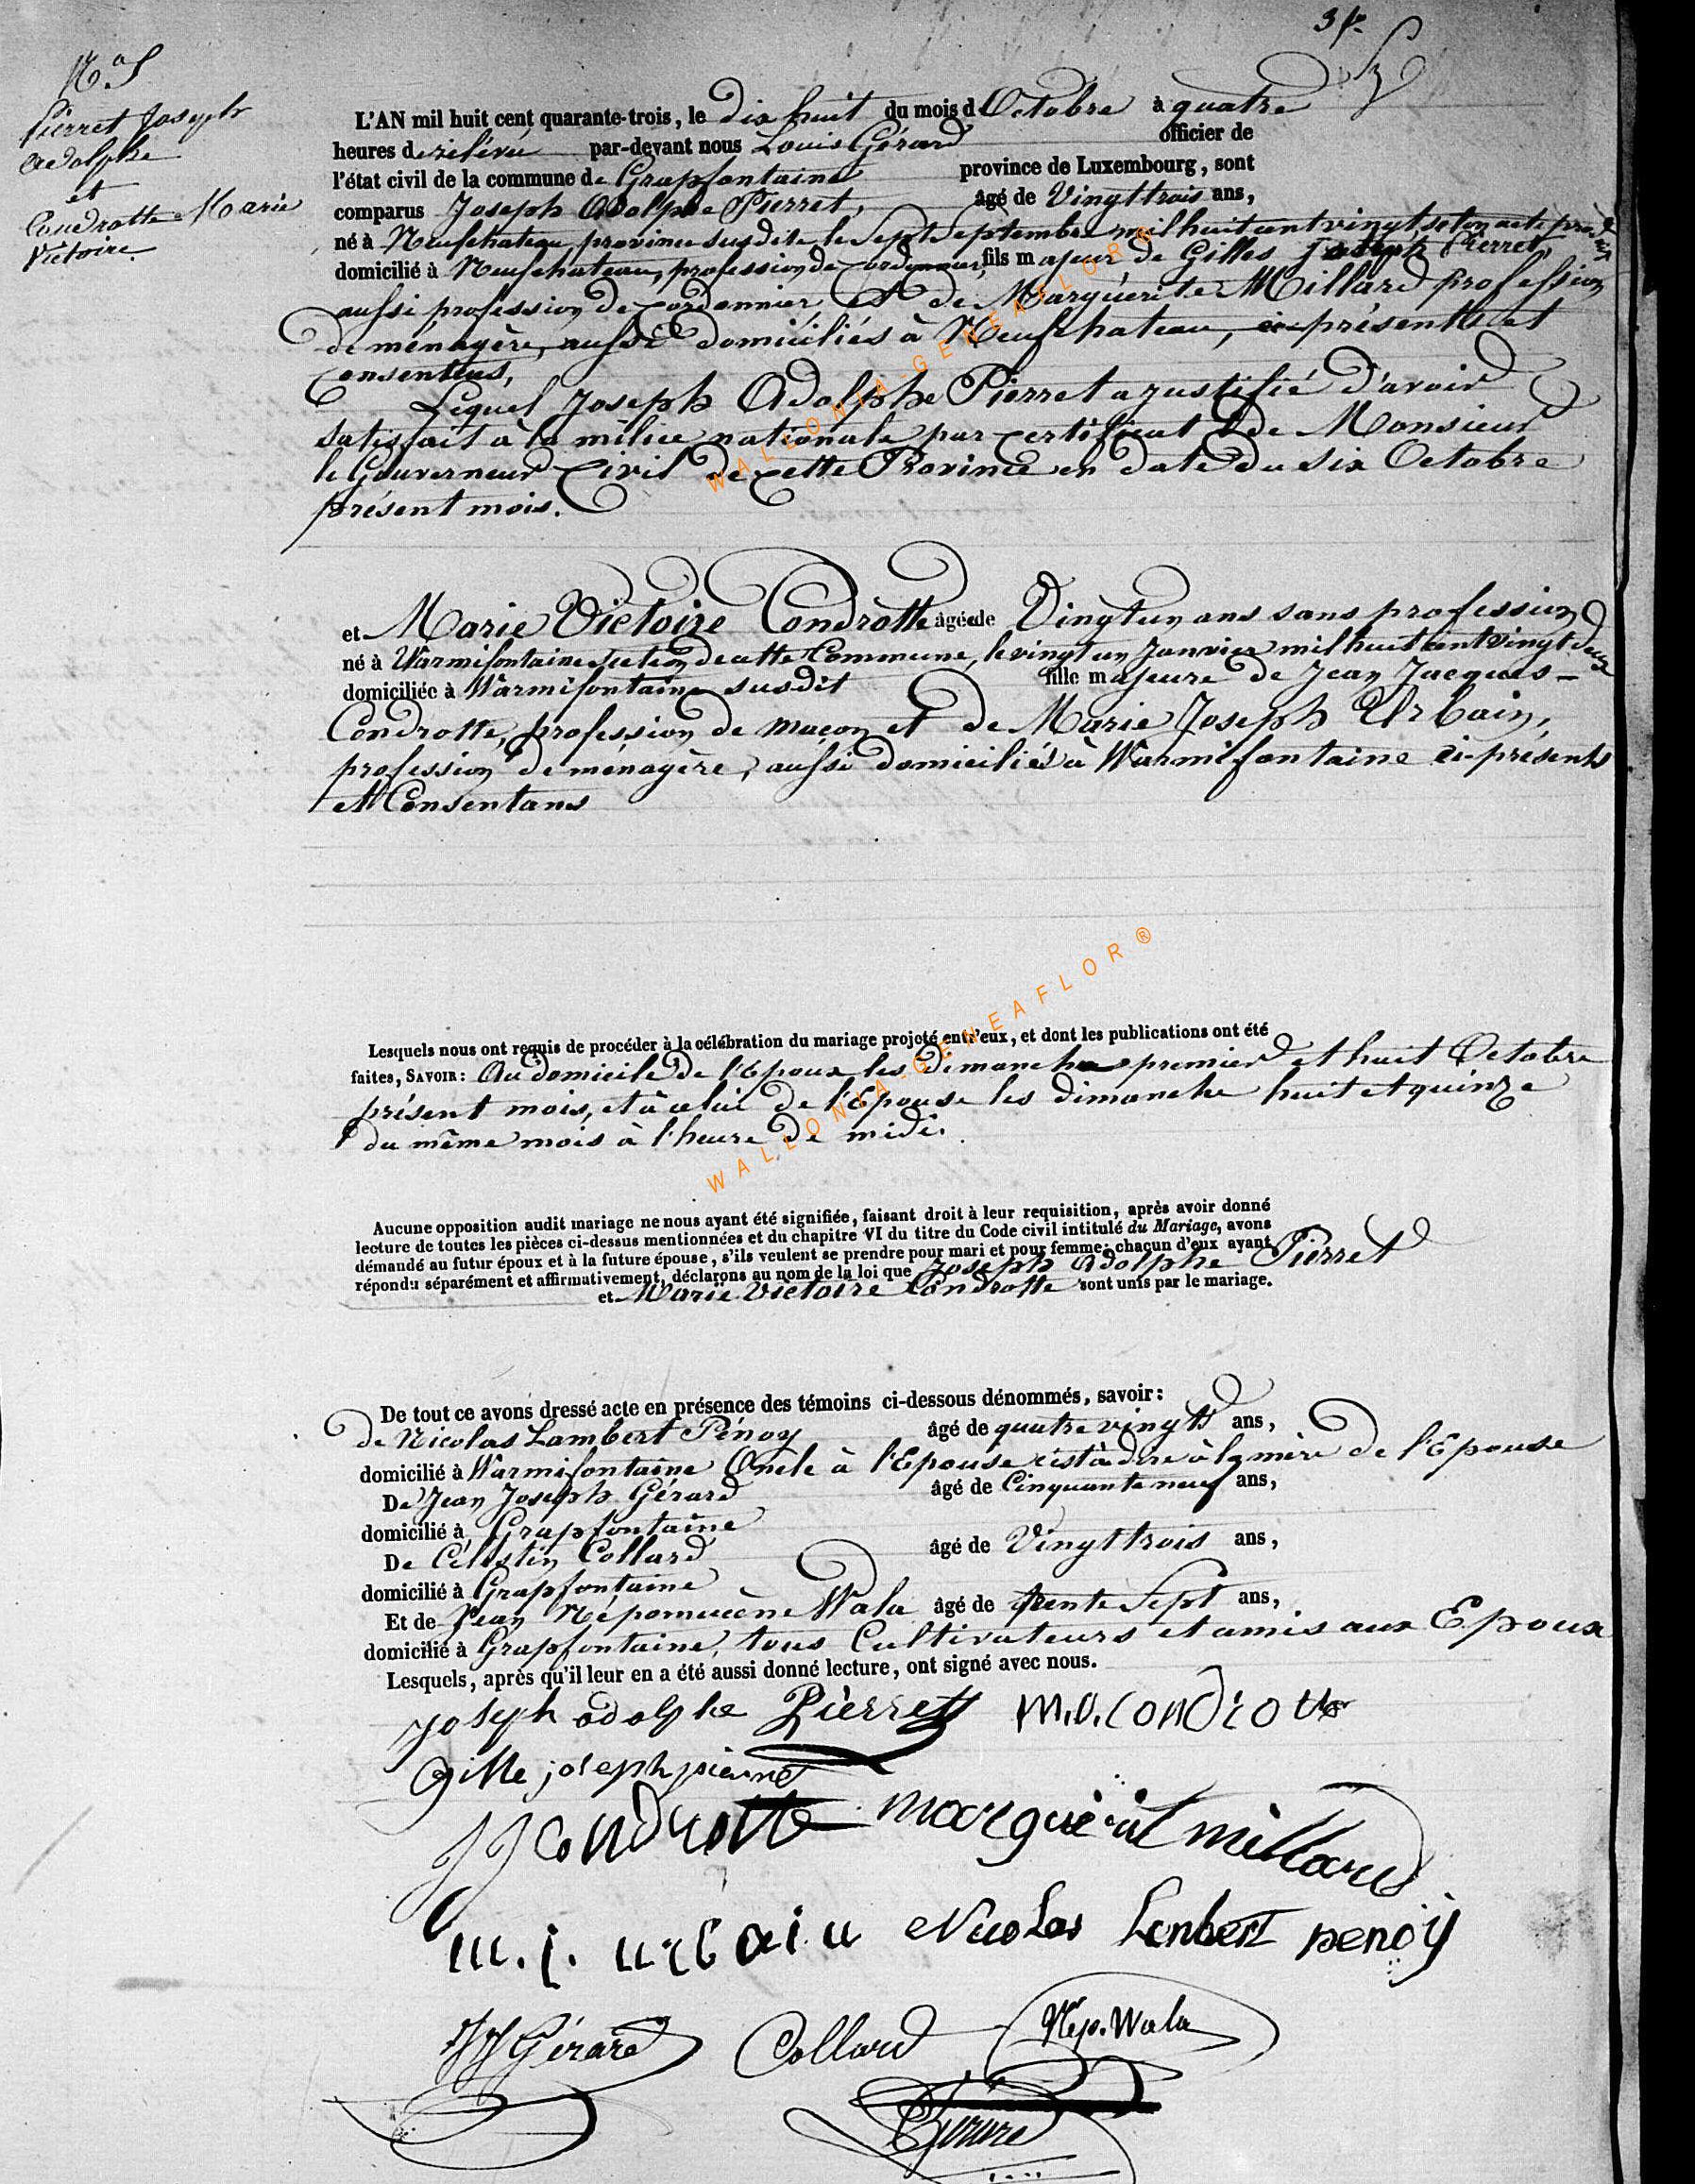 3
N° 5
Pierret Joseph
Adolphe
et
Condrotte Marie
Victoire.
L'AN mil huit cent quarante-trois, le dix huit du mois d'Octobre à quatre
heures de relevée par-devant nous Louis Gérard officier de
l'état civil de la commune de Grapfontaine province de Luxembourg, sont
comparus Joseph Adolphe Pierret, âgé de Vingt trois ans,
né à Neufchateau, province susdite le Sept Septembre mil huit cent vingt selon acte
domicilié à Neufchateau, profession de Cordonnier, fils majeur de Gilles Joseph Pierret,
aussi profession de Cordonnier, et de Marguerite Millard profession
de ménagère, aussi domiciliés à Neufchateau, ci-présents et
Consentans,
Lequel Joseph Adolphe Pierret a justifié d'avoir
satisfait à la milice nationale par certificat de Monsieur
le Gouverneur Civil de cette Province en date du six Octobre
présent mois.
et Marie Victoire Condrotte âgée de Vingt un ans sans profession
né à Warmifontaine section de cette Commune, le vingt un Janvier mil huit cent vingt deux
domiciliée à Warmifontaine susdit fille majeure de Jean Jacques -
Condrotte, profession de maçon et de Marie Joseph Urbain,
profession de ménagère, aussi domiciliés à Warmifontaine ci-présents
et Consentans
Lesquels nous ont requis de procéder à la célébration du mariage projeté entr'eux, et dont les publications ont été
faites, SAVOIR: Au domicile de l'Epoux les dimanche premier et huit Octobre
présent mois, et à celui de l'Epouse les dimanche huit et quinze
du même mois à l'heure de midi.
Aucune opposition audit mariage ne nous ayant été signifiée, faisant droit à leur requisition, après avoir donné
lecture de toutes les pièces ci-dessus mentionnées et du chapitre VI du titre du Code civil intitulé du Mariage, avons
démandé au futur époux et à la future épouse, s'ils veulent se prendre pour mari et pour femme; chacun d'eux ayant
répondu séparément et affirmativement, déclarons au nom de la loi que Joseph Adolphe Pierret
et Marie Victoire Condrotte sont unis par le mariage.
De tout ce avons dressé acte en présence des témoins ci-dessous dénommés, savoir:
de Nicolas Lambert Pénoy âgé de quatre vingts ans,
domicilié à Warmifontaine Oncle à l'Epouse c'est à dire à la mère de l'Epouse
De Jean Joseph Gérard âgé de Cinquante neuf ans,
domicilié à Grapfontaine
De Célestin Collard âgé de Vingt trois ans,
domicilié à Grapfontaine
Et de Jean Népomucène Wala âgé de trente Sept ans,
domicilié à Grapfontaine, tous Cultivateurs et amis aux Epoux
Lesquels, après qu'il leur en a été aussi donné lecture, ont signé avec nous.
Joseph adolphe Pierret m.v. condrotte
Gille joseph pierret
JJ Condrotte marguerit millard
m. j. urbain Nicolas Lenbert penoy
JJ Gérard Collard Nép. Wala
Gérard
WALLONIA-GENEAFLOR®
WALLONIA-GENEAFLOR®